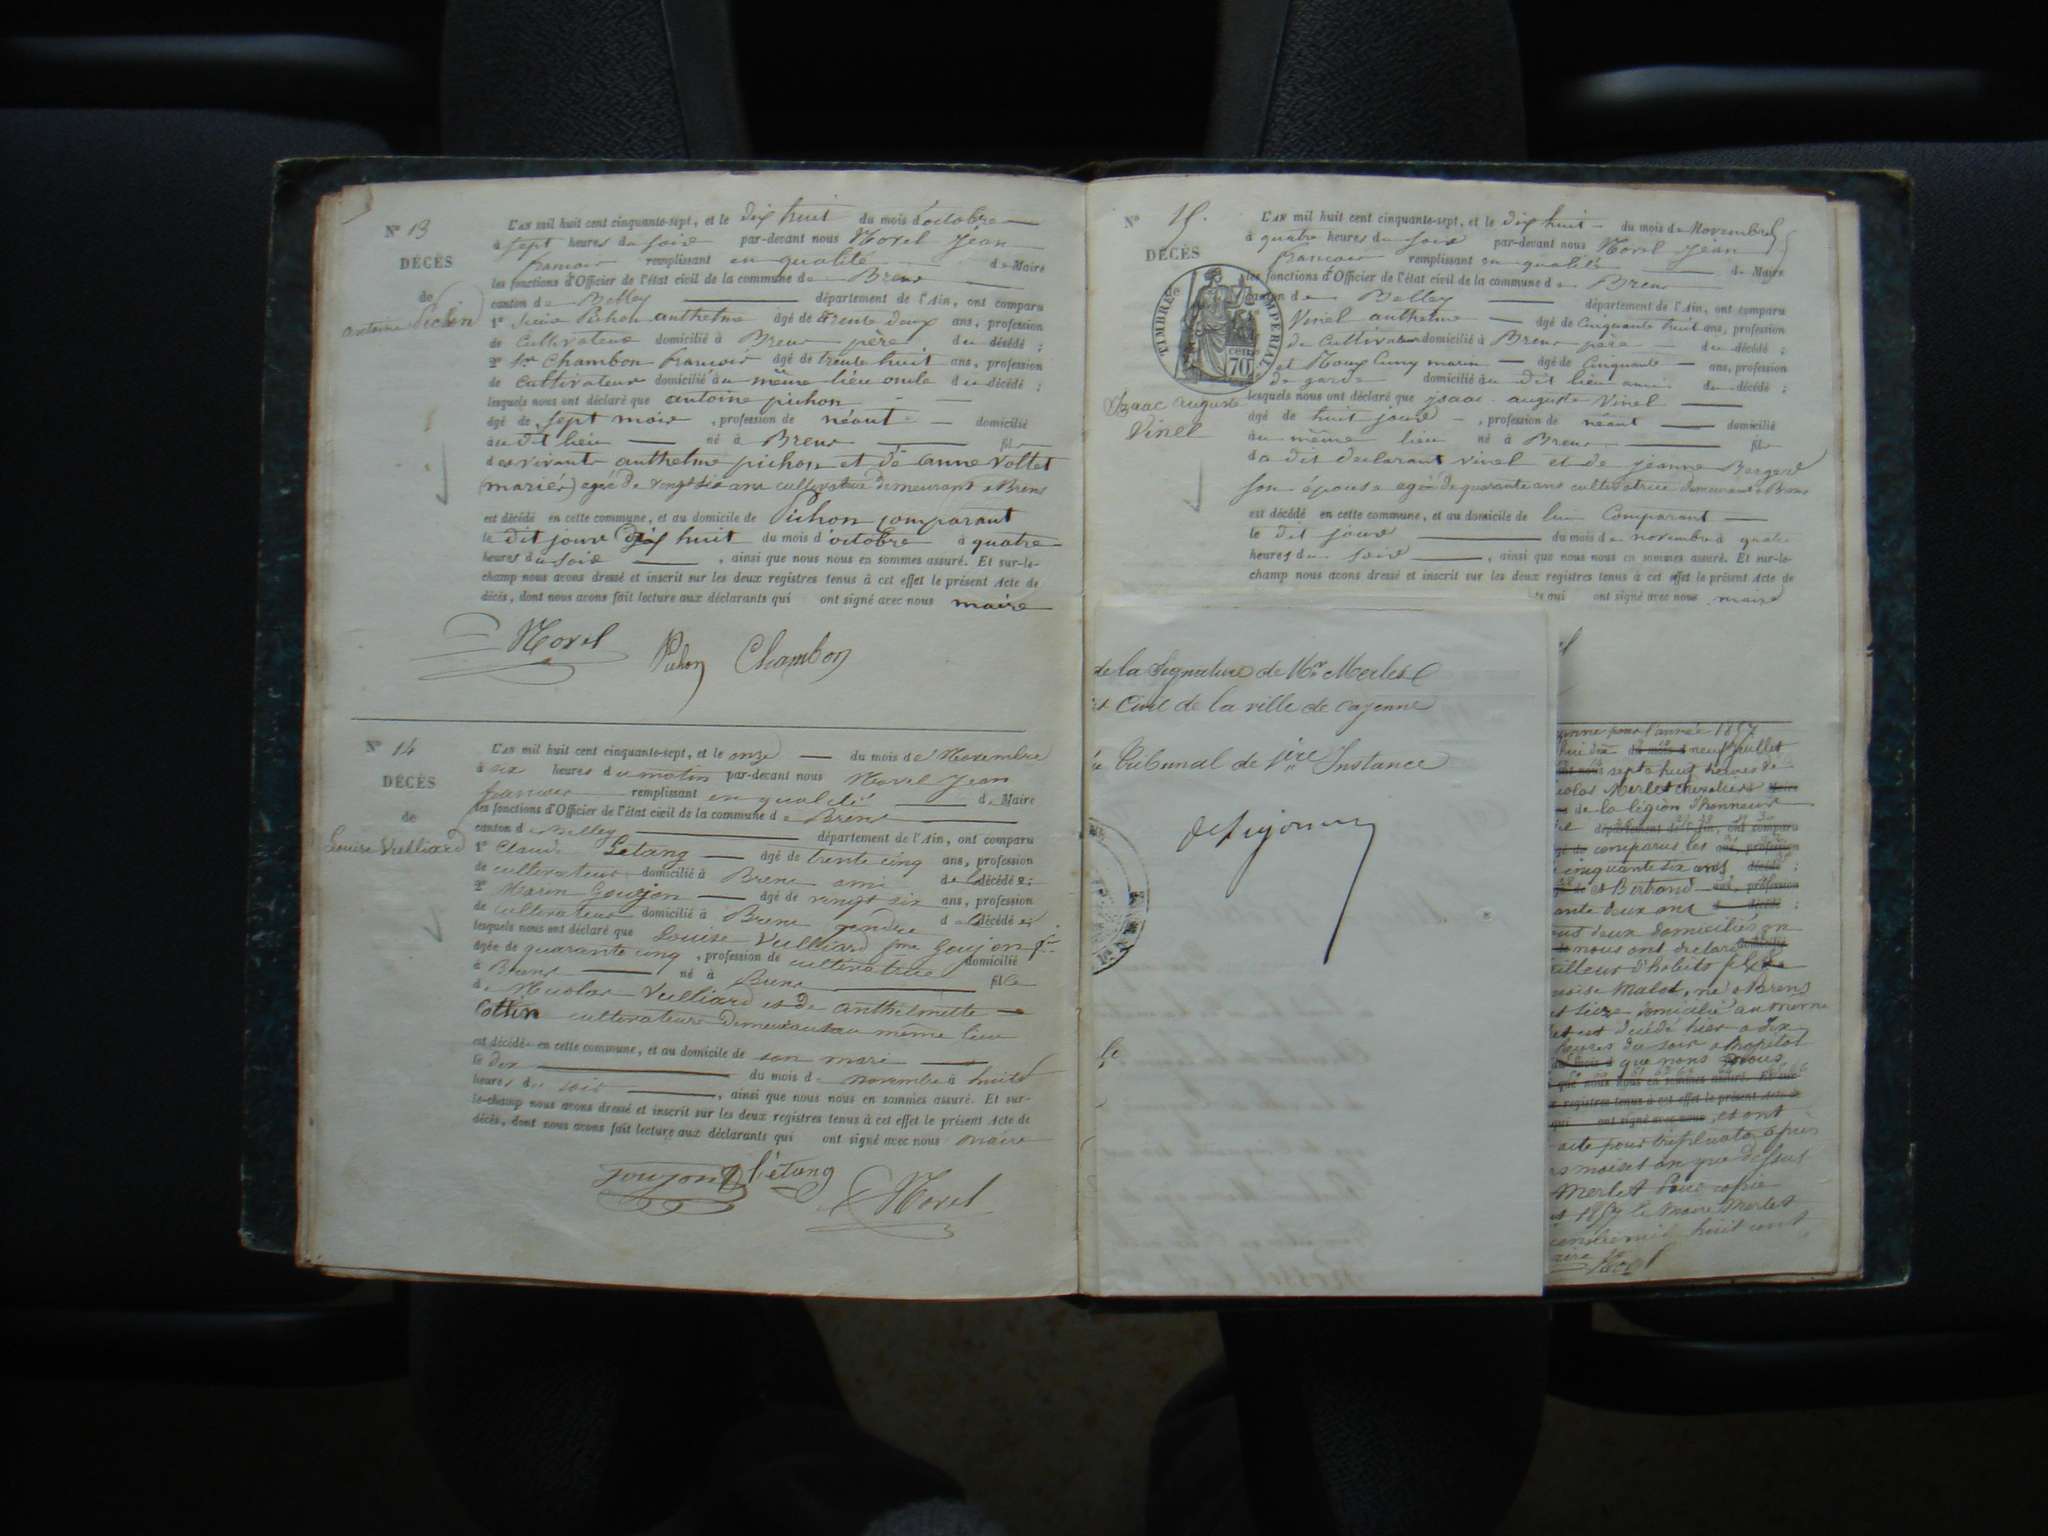 N° 13
DÉCÈS
de
antoine Pichon
L'AN mil huit cent cinquante-sept, et le dix huit du mois d'octobre
à sept heures du soir par-devant nous Morel Jean
francois remplissant en qualité de Maire
les fonctions d'Officier de l'état civil de la commune de Brens
canton de Belley département de l'Ain, ont comparu
1° Pichon anthelme âgé de trente deux ans, profession
de Cultivateur domicilié à Brens père du décédé ;
2° Sr Chambon francois âgé de trente huit ans, profession
de Cultivateur domicilié au même lieu oncle du décédé ;
lesquels nous ont déclaré que antoine pichon
âgé de sept mois , profession de néant domicilié
au dit lieu né à Brens fils
des vivants anthelme pichon et de anne Vollet
(mariés) agée de vingt six ans cultivatrice demeurant a Brens
est décédé en cette commune, et au domicile de Pichon comparant
le dit jour dix huit du mois d'octobre à quatre
heures du soir , ainsi que nous nous en sommes assuré. Et sur-le-
champ nous avons dressé et inscrit sur les deux registres tenus à cet effet le présent Acte de
décès, dont nous avons fait lecture aux déclarants qui ont signé avec nous maire
Morel Pichon Chambon
N° 14
DÉCÈS
de
Louise Vulliard
L'AN mil huit cent cinquante-sept, et le onze du mois de Novembre
à six heures du matin par-devant nous Morel Jean
francois remplissant en qualité de Maire
les fonctions d'Officier de l'état civil de la commune de Brens
canton de Belley département de l'Ain, ont comparu
1° Claude Létang âgé de trente cinq ans, profession
de cultivateur domicilié à Brens ami de la décédée ;
2° Marin Goujon âgé de vingt six ans, profession
de cultivateur domicilié à Brens gendre de la décédée
lesquels nous ont déclaré que Louise Vulliard fme Goujon
âgée de quarante cinq , profession de cultivatrice domicilié
à Brens né à Brens fille
de Nicolas Vulliard et de anthelmette
Cottin cultivateurs demeurant au même lieu
est décédée en cette commune, et au domicile de son mari
le dix du mois de novembre à huit
heures du soir , ainsi que nous nous en sommes assuré. Et sur-
le-champ nous avons dressé et inscrit sur les deux registres tenus à cet effet le présent Acte de
décès, dont nous avons fait lecture aux déclarants qui ont signé avec nous maire
goujon létang
Morel
N° 15.
DÉCÈS
TIMBRE IMPERIAL
70 cent
Isaac auguste
Vinel
L'AN mil huit cent cinquante-sept, et le dix huit du mois de Novembre
à quatre heures du soir par-devant nous Morel Jean
francois remplissant en qualité de Maire
les fonctions d'Officier de l'état civil de la commune de Brens
canton de Belley département de l'Ain, ont comparu
Vinel anthelme âgé de cinquante huit ans, profession
de Cultivateur domicilié à Brens père du décédé ;
et Roux marin âgé de Cinquante ans, profession
de garde domicilié au dit lieu ami du décédé ;
lesquels nous ont déclaré que ysaac auguste Vinel
âgé de huit jours , profession de néant domicilié
au même lieu né à Brens fils
du dit declarant vinel et de jeanne Berger
son épouse agée de quarante ans cultivatrice demeurant a Brens
est décédé en cette commune, et au domicile de lui Comparant
le dit jour du mois de novembre à quatre
heures du soir , ainsi que nous nous en sommes assuré. Et sur-le-
champ nous avons dressé et inscrit sur les deux registres tenus à cet effet le présent Acte de
qui ont signé avec nous maire
de la Signature de Mr Merlet
Civil de la ville de Cayenne
Tribunal de 1ière Instance
pour l'année 1857
neuf juillet
sept a huit heures de
Merlet chevalier
de la légion d'honneur
département de l'Ain, ont comparu
comparus les
cinquante six ans
et Bertrand
ante deux ans
deux domiciliés en
nous ont declaré
tailleur d'habits
Malot, né a Brens
domicilié au même
est décédé hier a dix
heures du soir a hopital
que nous nous
que nous nous en sommes assuré. Et sur-
registres tenus à cet effet le présent Acte de
qui ont signé avec nous , et ont
acte pour triplicata, après
mois et an que dessus
Merlet Pour copie
1857 le Maire Merlet
huit cent
Morel